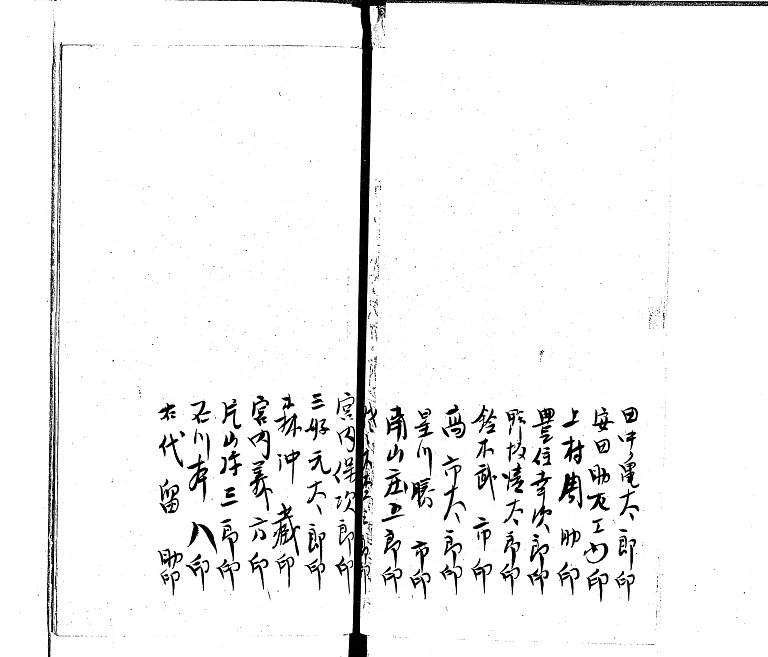 田中亀太郎印
安田助左エ門印
上村周助印
豊住幸次郎印
清太郎印
鈴木武市印
高市太郎印
星川勝市印
南山庄五郎印
宮内保次郎印
三好元太郎印
森沖蔵印
宮内義六印
片山 三郎印
石川 八印
代留助印